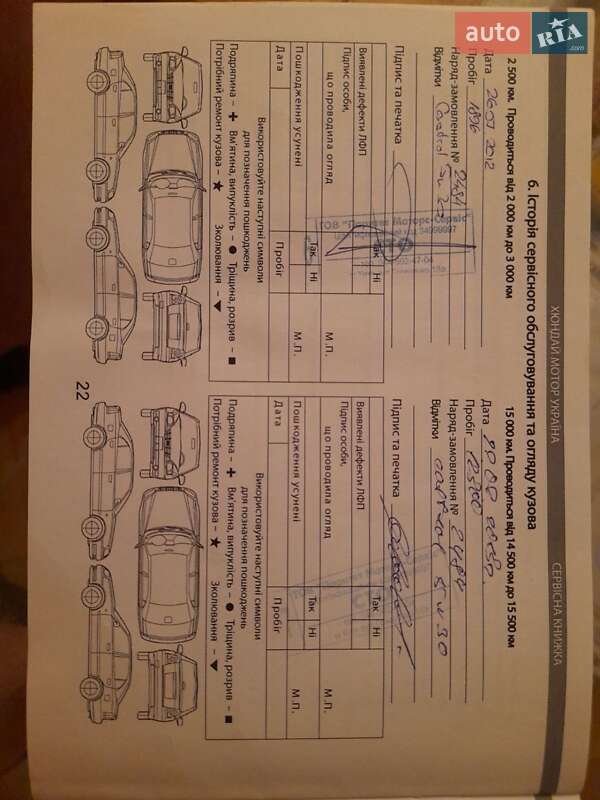 auto RIA .com
ХЮНДАЙ МОТОР УКРАЇНА
СЕРВІСНА КНИЖКА
6. Історія сервісного обслуговування та огляду кузова
2 500 км. Проводиться від 2 000 км до 3 000 км
Дата
2012
Пробіг 1896
Наряд-замовлення № 2484
Відмітки
Підпис та печатка
ТОВ
34999997
Виявлені дефекти ЛФП
Так
Ні
Підпис особи,
що проводила огляд
М.П.
Пошкодження усунені
Так
Ні
М.П.
Дата
Пробіг
Використовуйте наступні символи
для позначення пошкоджень
Подряпина – + Вм'ятина, випуклість – ● Тріщина, розрив – ■
Потрібний ремонт кузова – ★ Зколювання – ▼
15 000 км. Проводиться від 14 500 км до 15 500 км
Дата
Пробіг
Наряд-замовлення №
Відмітки 5w30
Підпис та печатка
Виявлені дефекти ЛФП
Так
Ні
Підпис особи,
що проводила огляд
М.П.
Пошкодження усунені
Так
Ні
М.П.
Дата
Пробіг
Використовуйте наступні символи
для позначення пошкоджень
Подряпина – + Вм'ятина, випуклість – ● Тріщина, розрив – ■
Потрібний ремонт кузова – ★ Зколювання – ▼
22